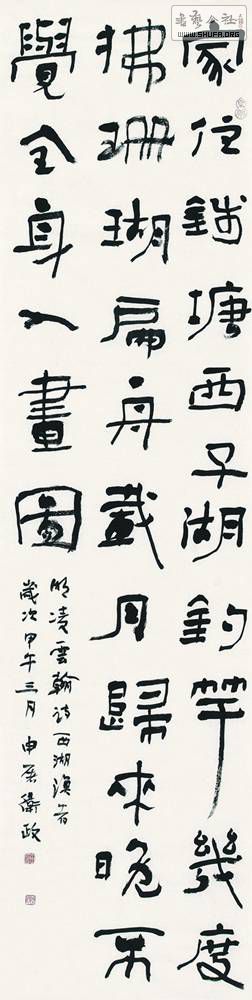 书艺公社
WWW.SHUFA.ORG
家住錢塘西子湖釣竿幾度
拂珊瑚扁舟載月歸來晚不
覺全身入畫圖
明凌雲翰詩西湖漁者
歲次甲午三月申